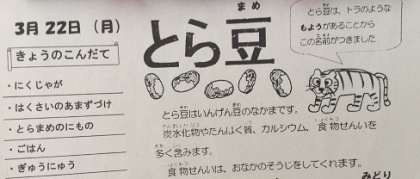 3月 22日 (月)
きょうのこんだて
・にくじゃが
・はくさいのあまずづけ
・とらまめのにもの
・ごはん
・ぎゅうにゅう
とら豆
まめ
とら豆は、トラのような
もようがあることから
この名前がつきました
とら豆はいんげん豆のなかまです。
炭水化物やたんぱく質、カルシウム、食物せんいを
多く含みます。
食物せんいは、おなかのそうじをしてくれます。
みどり